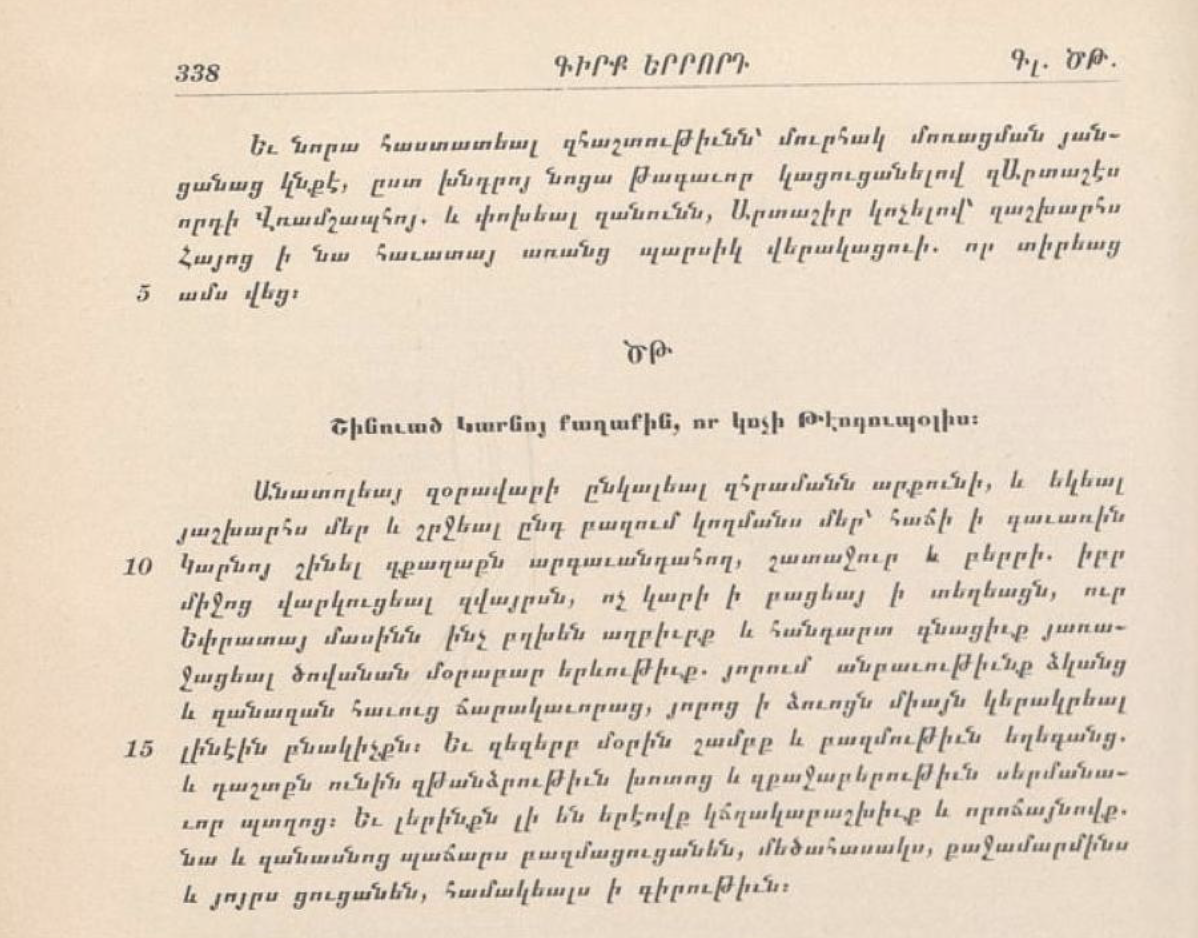 338 ԳԻՐՔ ԵՐՐՈՐԴ Գլ. ԾԹ.
Եւ նորա հաստատեալ զհաշտութիւնն՝ մուրհակ մոռացման յան-
ցանաց կնքէ, ըստ խնդրոյ նոցա թագաւոր կացուցանելով զԱրտաշէս
որդի Վռամշապհոյ. և փոխեալ զանունն, Արտաշիր կոչելով՝ զաշխարհս
Հայոց ի նա հաւատայ առանց պարսիկ վերակացուի. որ տիրեաց
5 ամս վեց։
ԾԹ
Շինուած Կարնոյ քաղաքին, որ կոչի Թէոդուպօլիս։
Անատոլեայ զօրավարի ընկալեալ զհրամանն արքունի, և եկեալ
յաշխարհս մեր և շրջեալ ընդ բազում կողմանս մեր՝ հաճի ի գաւառին
10 Կարնոյ շինել զքաղաքն արգաւանդահող, շատաջուր և բերրի. իբր
միջոց վարկուցեալ զվայրսն, ոչ կարի ի բացեայ ի տեղեացն, ուր
Եփրատայ մասինն ինչ բղխեն աղբիւրք և հանդարտ գնացիւք յառա-
ջացեալ ծովանան մօրաբար երևութիւք. յորում անբաւութիւնք ձկանց
և զանազան հաւուց ճարակաւորաց, յորոց ի ձուոցն միայն կերակրեալ
15 լինէին բնակիչքն։ Եւ զեզերբ մօրին շամբք և բազմութիւն եղեգանց.
և դաշտքն ունին զթանձրութիւն խոտոց և զքաջաբերութիւն սերմանա-
ւոր պտղոց։ Եւ լերինքն լի են երէովք կճղակաբաշխիւք և որոճայնովք.
նա և զանասնոց պաճարս բազմացուցանեն, մեծահասակս, քաջամարմինս
և յոյրս ցուցանեն, համակեալս ի գիրութիւն։